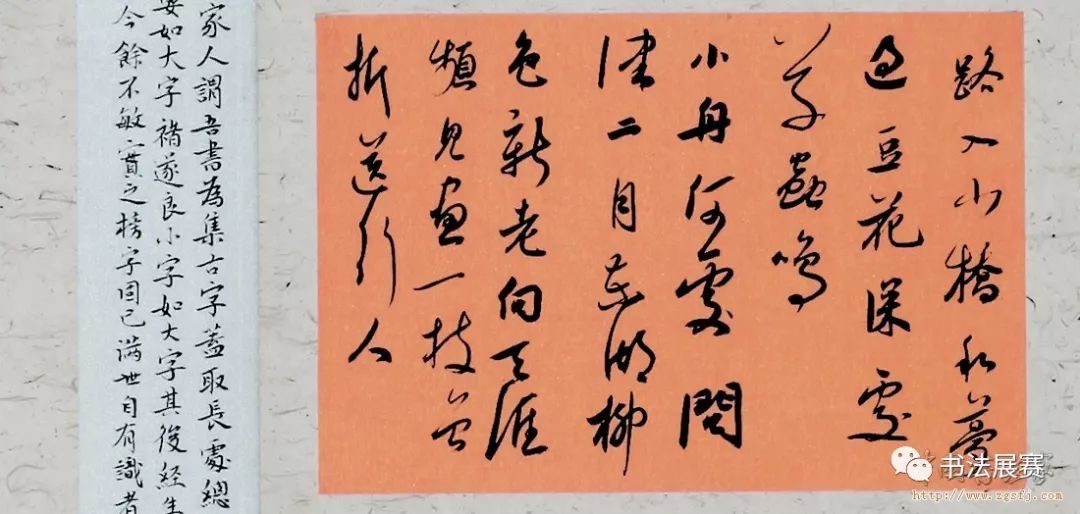 路入小橋和夢
過豆花深處
草蟲鳴
小舟何處問
津二月東湖柳
色新老向天涯
頻見畫一枝曾
折送行人
家人謂吾書為集古字蓋取長處總
要如大字褚遂良小字如大字其後經生
今餘不敏實之榜字固已滿世自有識者
书法展赛
http://www.zgsfj.com